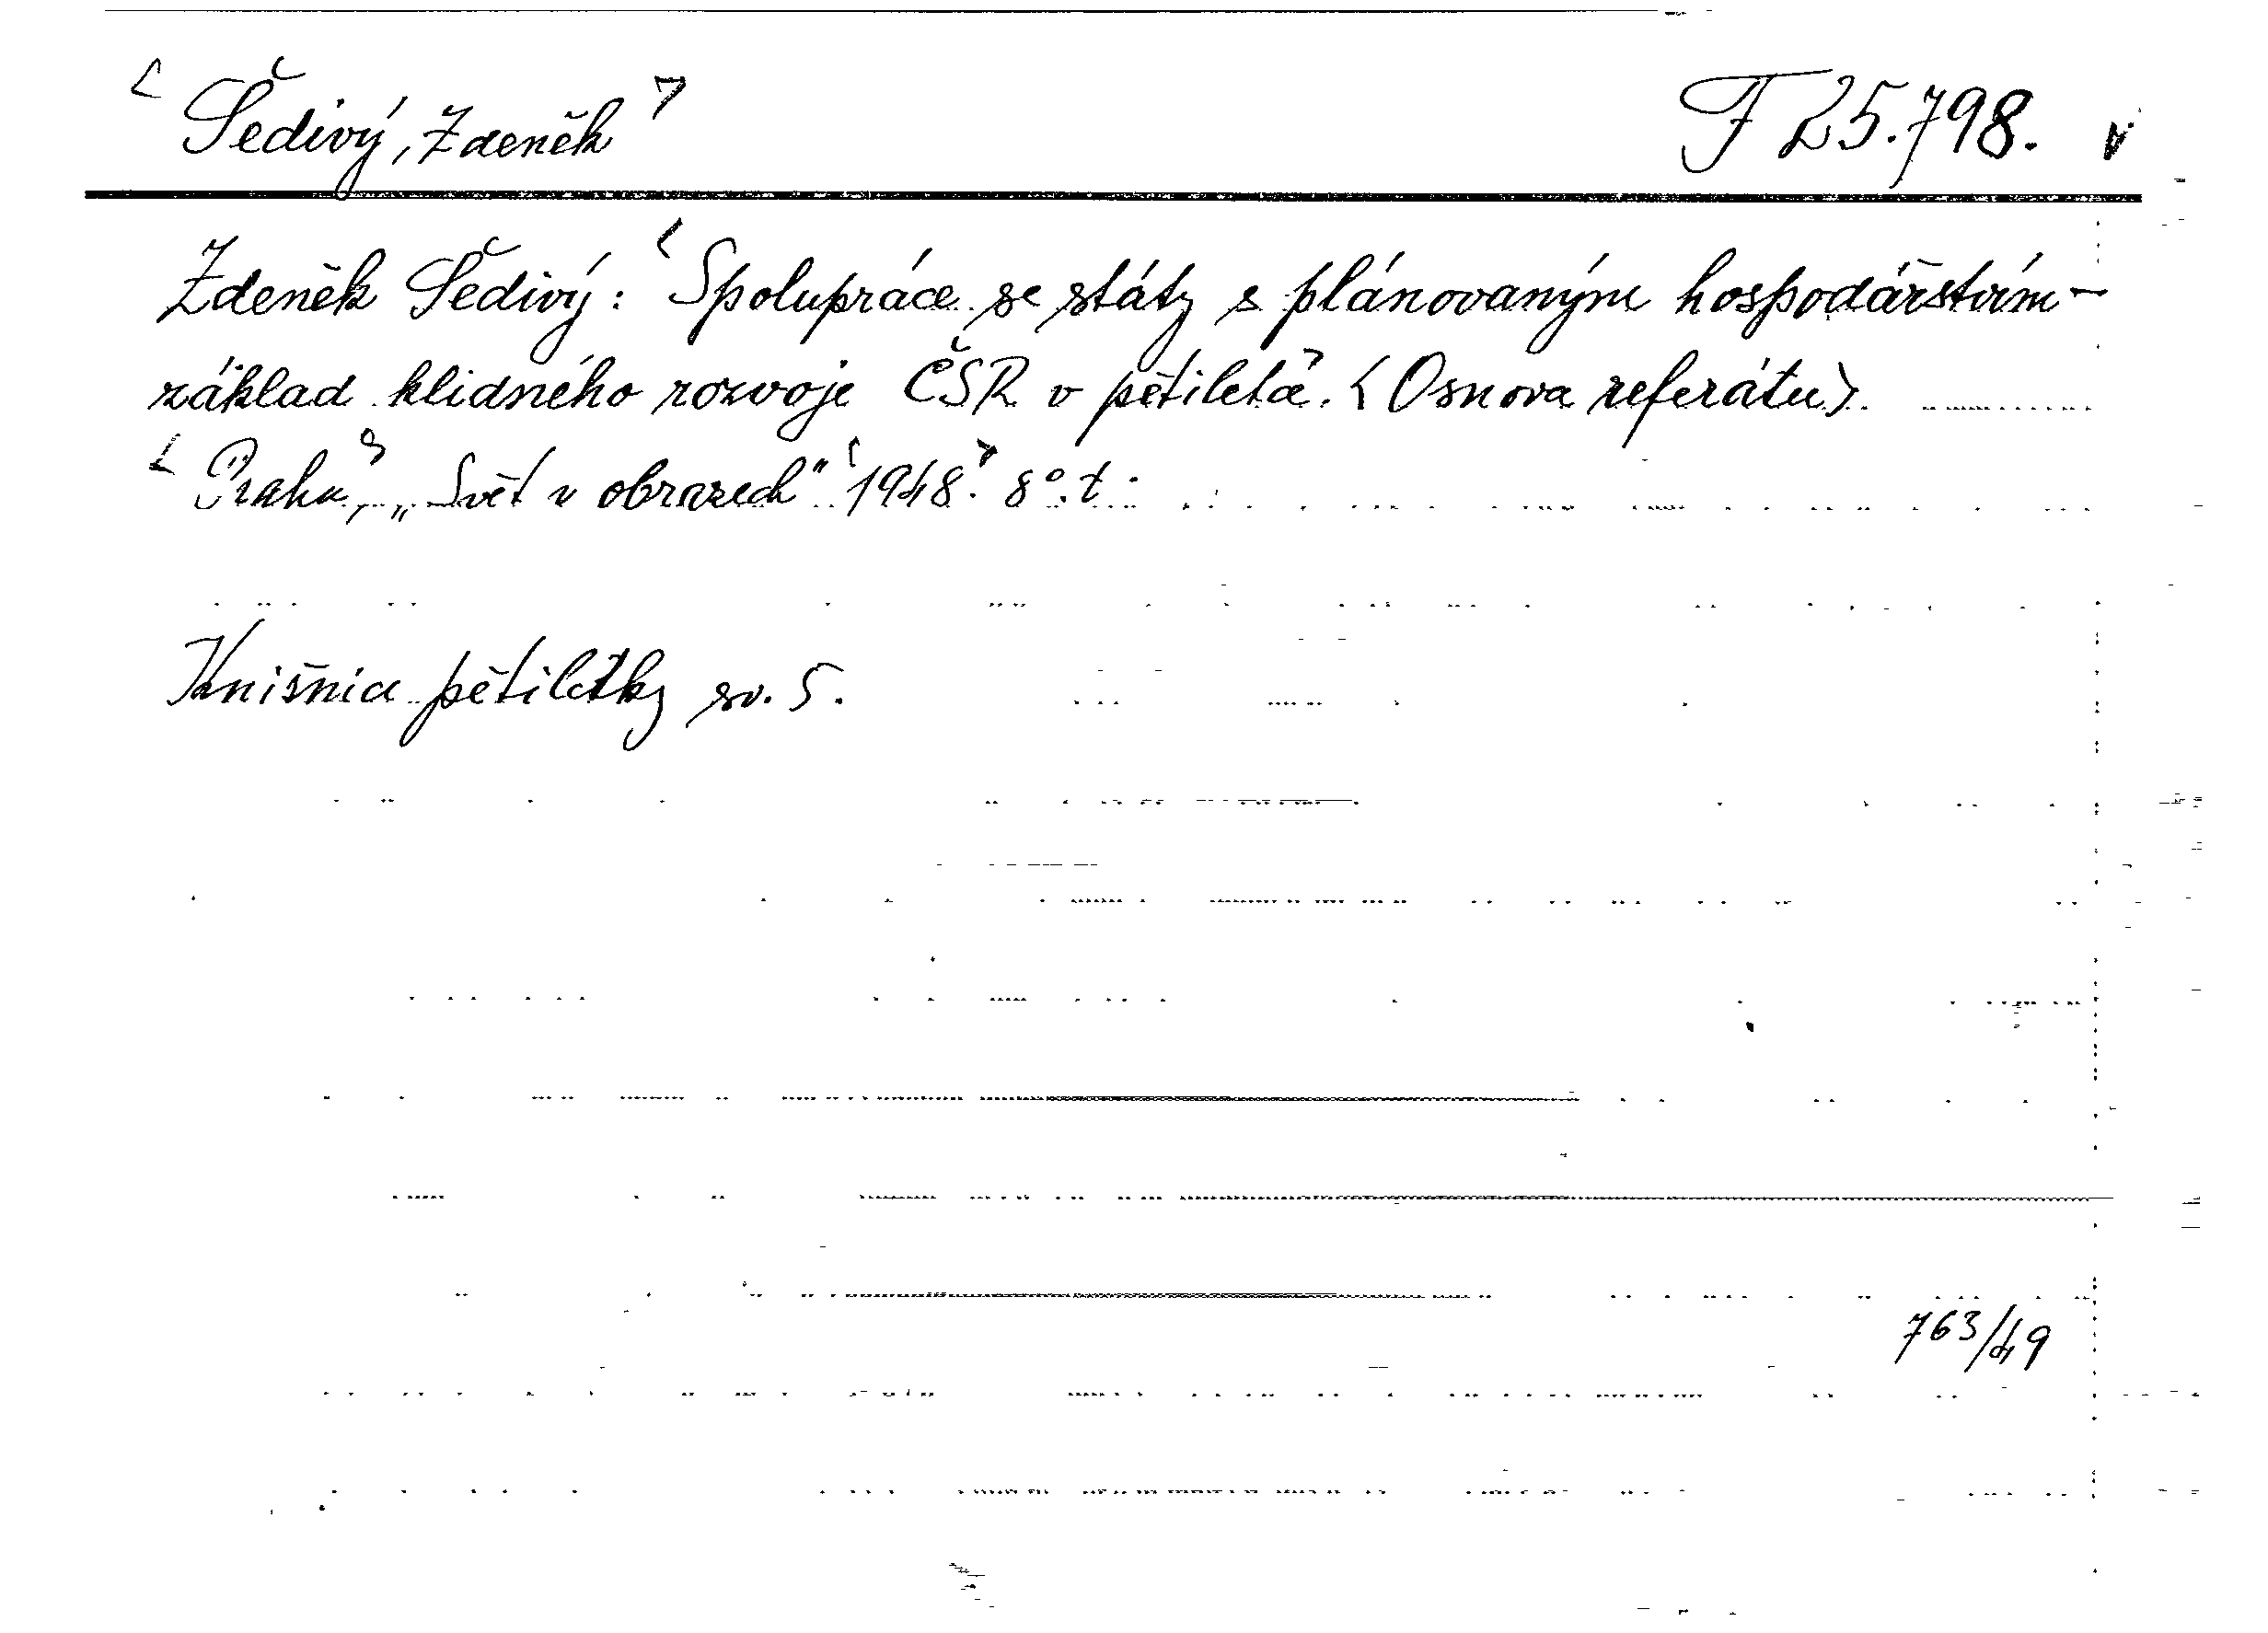 < Šedivý, Zdeněk > F 25.798. v
Zdeněk Šedivý: <Spolupráce se státy s plánovaným hospodářstvím -
základ klidného rozvoje ČSR v pětileté.> <Osnova referátu>.
<Praha,> „Svět v obrazech" <1948.> 8°. t.
Knižnica pětiletky sv. 5.
763/49